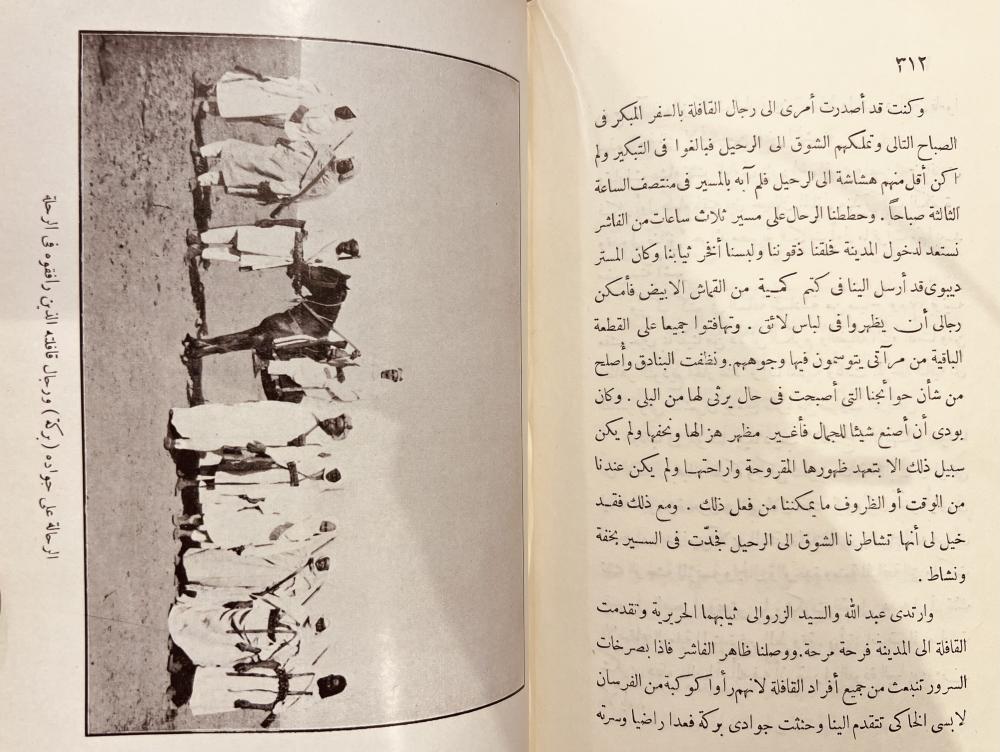 ٣١٢
وكنت قد أصدرت أمرى الى رجال القافلة بالسفر المبكر فى
الصباح التالى وتملكهم الشوق الى الرحيل فبالغوا فى التبكير ولم
اكن أقل منهم هشاشة الى الرحيل فلم آبه بالمسير فى منتصف الساعة
الثالثة صباحاً . وحططنا الرحال على مسير ثلاث ساعات من الفاشر
نستعد لدخول المدينة فحلقنا ذقوننا ولبسنا أفخر ثيابنا وكان المستر
ديبوى قد أرسل الينا فى كتم كمية من القماش الابيض فأمكن
رجالى أن يظهروا فى لباس لائق . وتهافتوا جميعا على القطعة
الباقية من مرآتى يتوسمون فيها وجوههم . ونظفت البنادق وأُصلح
من شأن حوائجنا التى أصبحت فى حال يرثى لها من البلى . وكان
بودى أن أصنع شيئا للجمال فأغير مظهر هزالها ونحفها ولم يكن
سبيل ذلك الا بتعهد ظهورها المقروحة واراحتها ولم يكن عندنا
من الوقت أو الظروف ما يمكننا من فعل ذلك . ومع ذلك فقد
خيل لى أنها تشاطرنا الشوق الى الرحيل فجدّت فى السير بخفة
ونشاط .
وارتدى عبد الله والسيد الزروالى ثيابهما الحريرية وتقدمت
القافلة الى المدينة فرحة مرحة . ووصلنا ظاهر الفاشر فاذا بصرخات
السرور تنبعث من جميع أفراد القافلة لانهم رأوا كوكبة من الفرسان
لابسى الخاكى تتقدم الينا وحثثت جوادى بركة فعدا راضيا وسرته
الرحالة على جواده (بركة) ورجال قافلته الذين رافقوه فى الرحلة